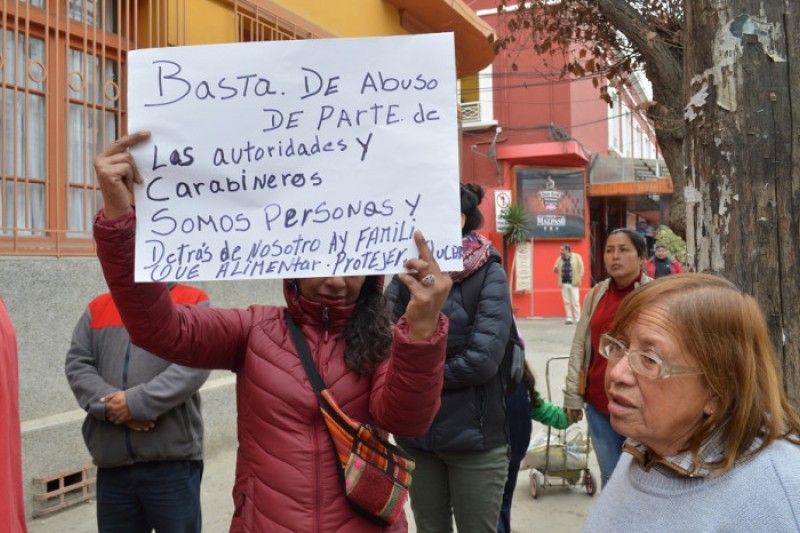 Basta. DE Abuso
DE PARTE de
Las autoridades y
Carabineros
Somos Personas y
Detrás de Nosotro Ay FAMILI
QUE Alimentar. Protejer.
MALPASO